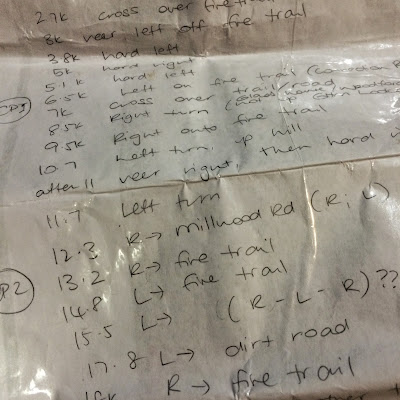 2.7k cross over fire trail
3k veer left off fire trail
3.8k hard left
5k hard right
5.1k hard left
6.5k Left on fire trail
7k cross over trail/road
8.5k Right turn
9.5k Right onto fire trail
10.7 Left turn, up hill
after 11 veer right, then hard
11.7 Left turn
12.3 R→ millwood Rd (R; L)
13.2 R→ fire trail
14.8 L→ fire trail
15.5 L→ (R-L-R)??
17.8 L→ dirt road
R→ fire trail